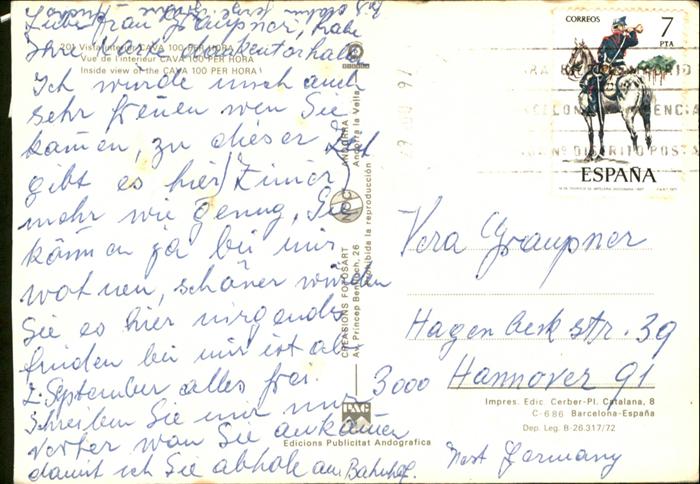 Liebe Frau Graupner, habe
Ihre
201 Vista interior CAVA 100 PER HORA
Vue de l'interieur CAVA 100 PER HORA
Inside view of the CAVA 100 PER HORA
Ich würde mich auch
sehr freuen wen Sie
kämen, zu dieser Zeit
gibt es hier Zimer
mehr wie genug, Sie
können ja bei mir
wohnen, schöner würden
Sie es hier nirgends
finden bei mir ist ab
2. September alles frei.
Schreiben Sie mir nur
vorher wan Sie ankämen
damit ich Sie abhole am Bahnhof.
ANDORRA
Andorra la Vella
CREASIONS FOTOSART
Av. Príncep Benlloch, 26
Prohibida la reproducción
Edicions Publicitat Andografica
CORREOS
7
PTA
ESPAÑA
DISTRITO POSTAL
Vera Graupner
Hagenbeckstr. 39
3000 Hannover 91
Impres. Edic. Cerber-Pl. Catalana, 8
C-686 Barcelona-España
Dep. Leg. B-26.317/72
West Germany